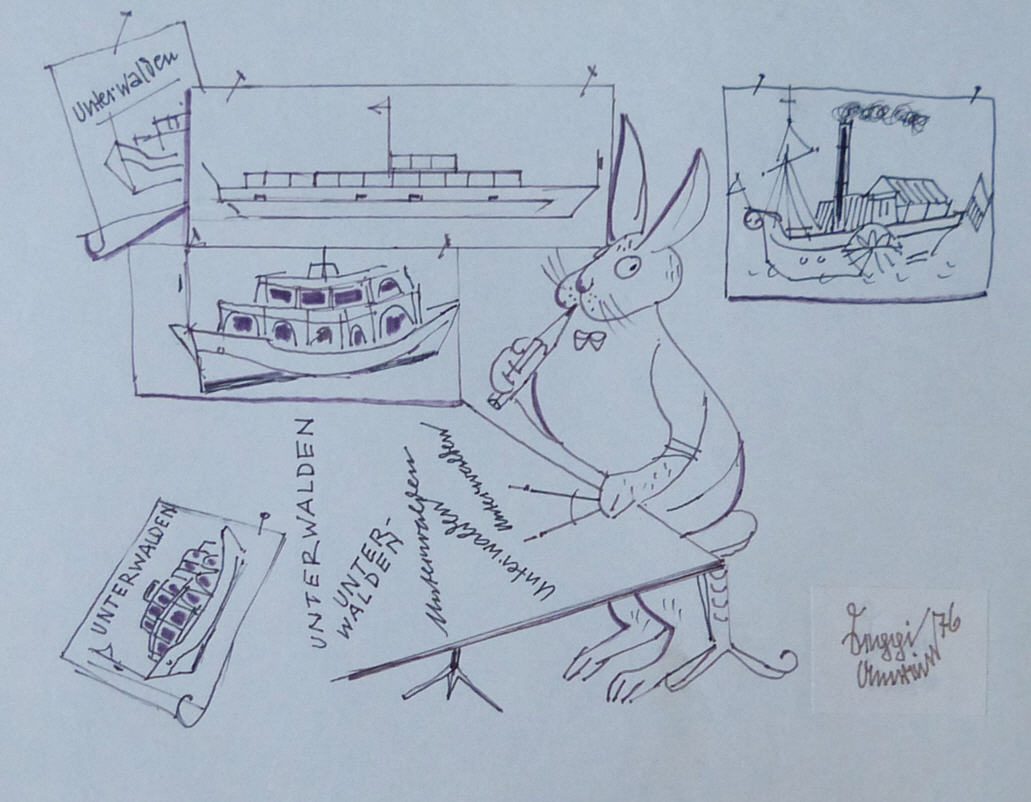 Unterwalden
UNTERWALDEN
UNTERWALDEN
UNTER-
WALDEN
Unterwalden
Unterwalden
Unterwalden
Unterwalden
76